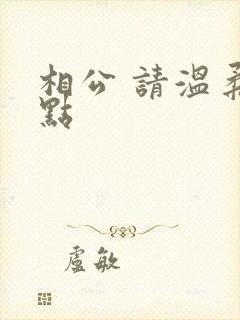 相公 請溫柔
點
盧敏